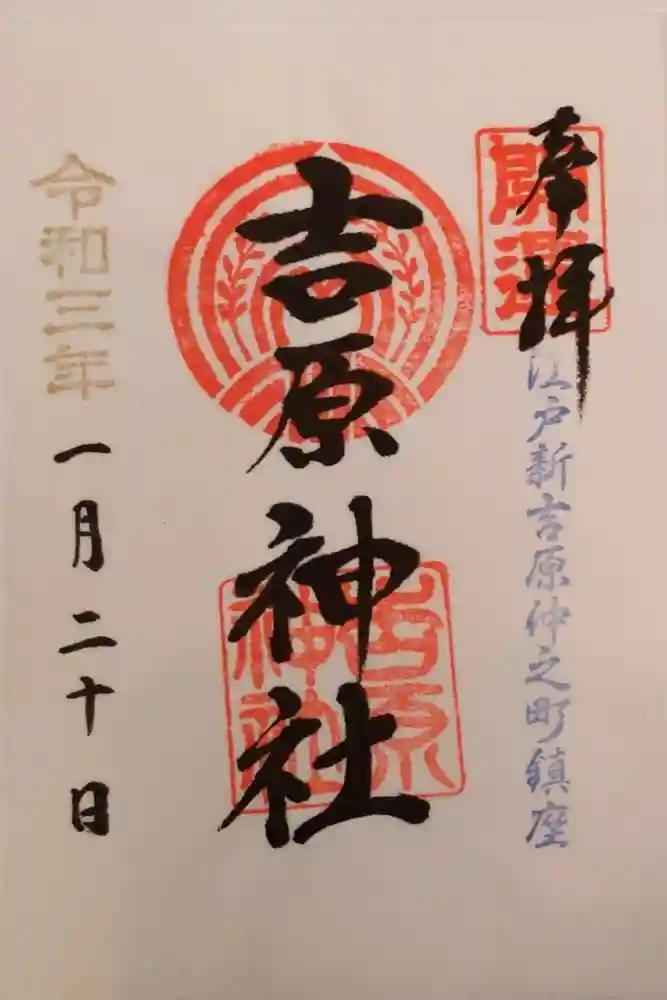 奉拝
開運
江戸新吉原仲之町鎮座
吉原神社
吉原
神社
令和三年
一月二十日